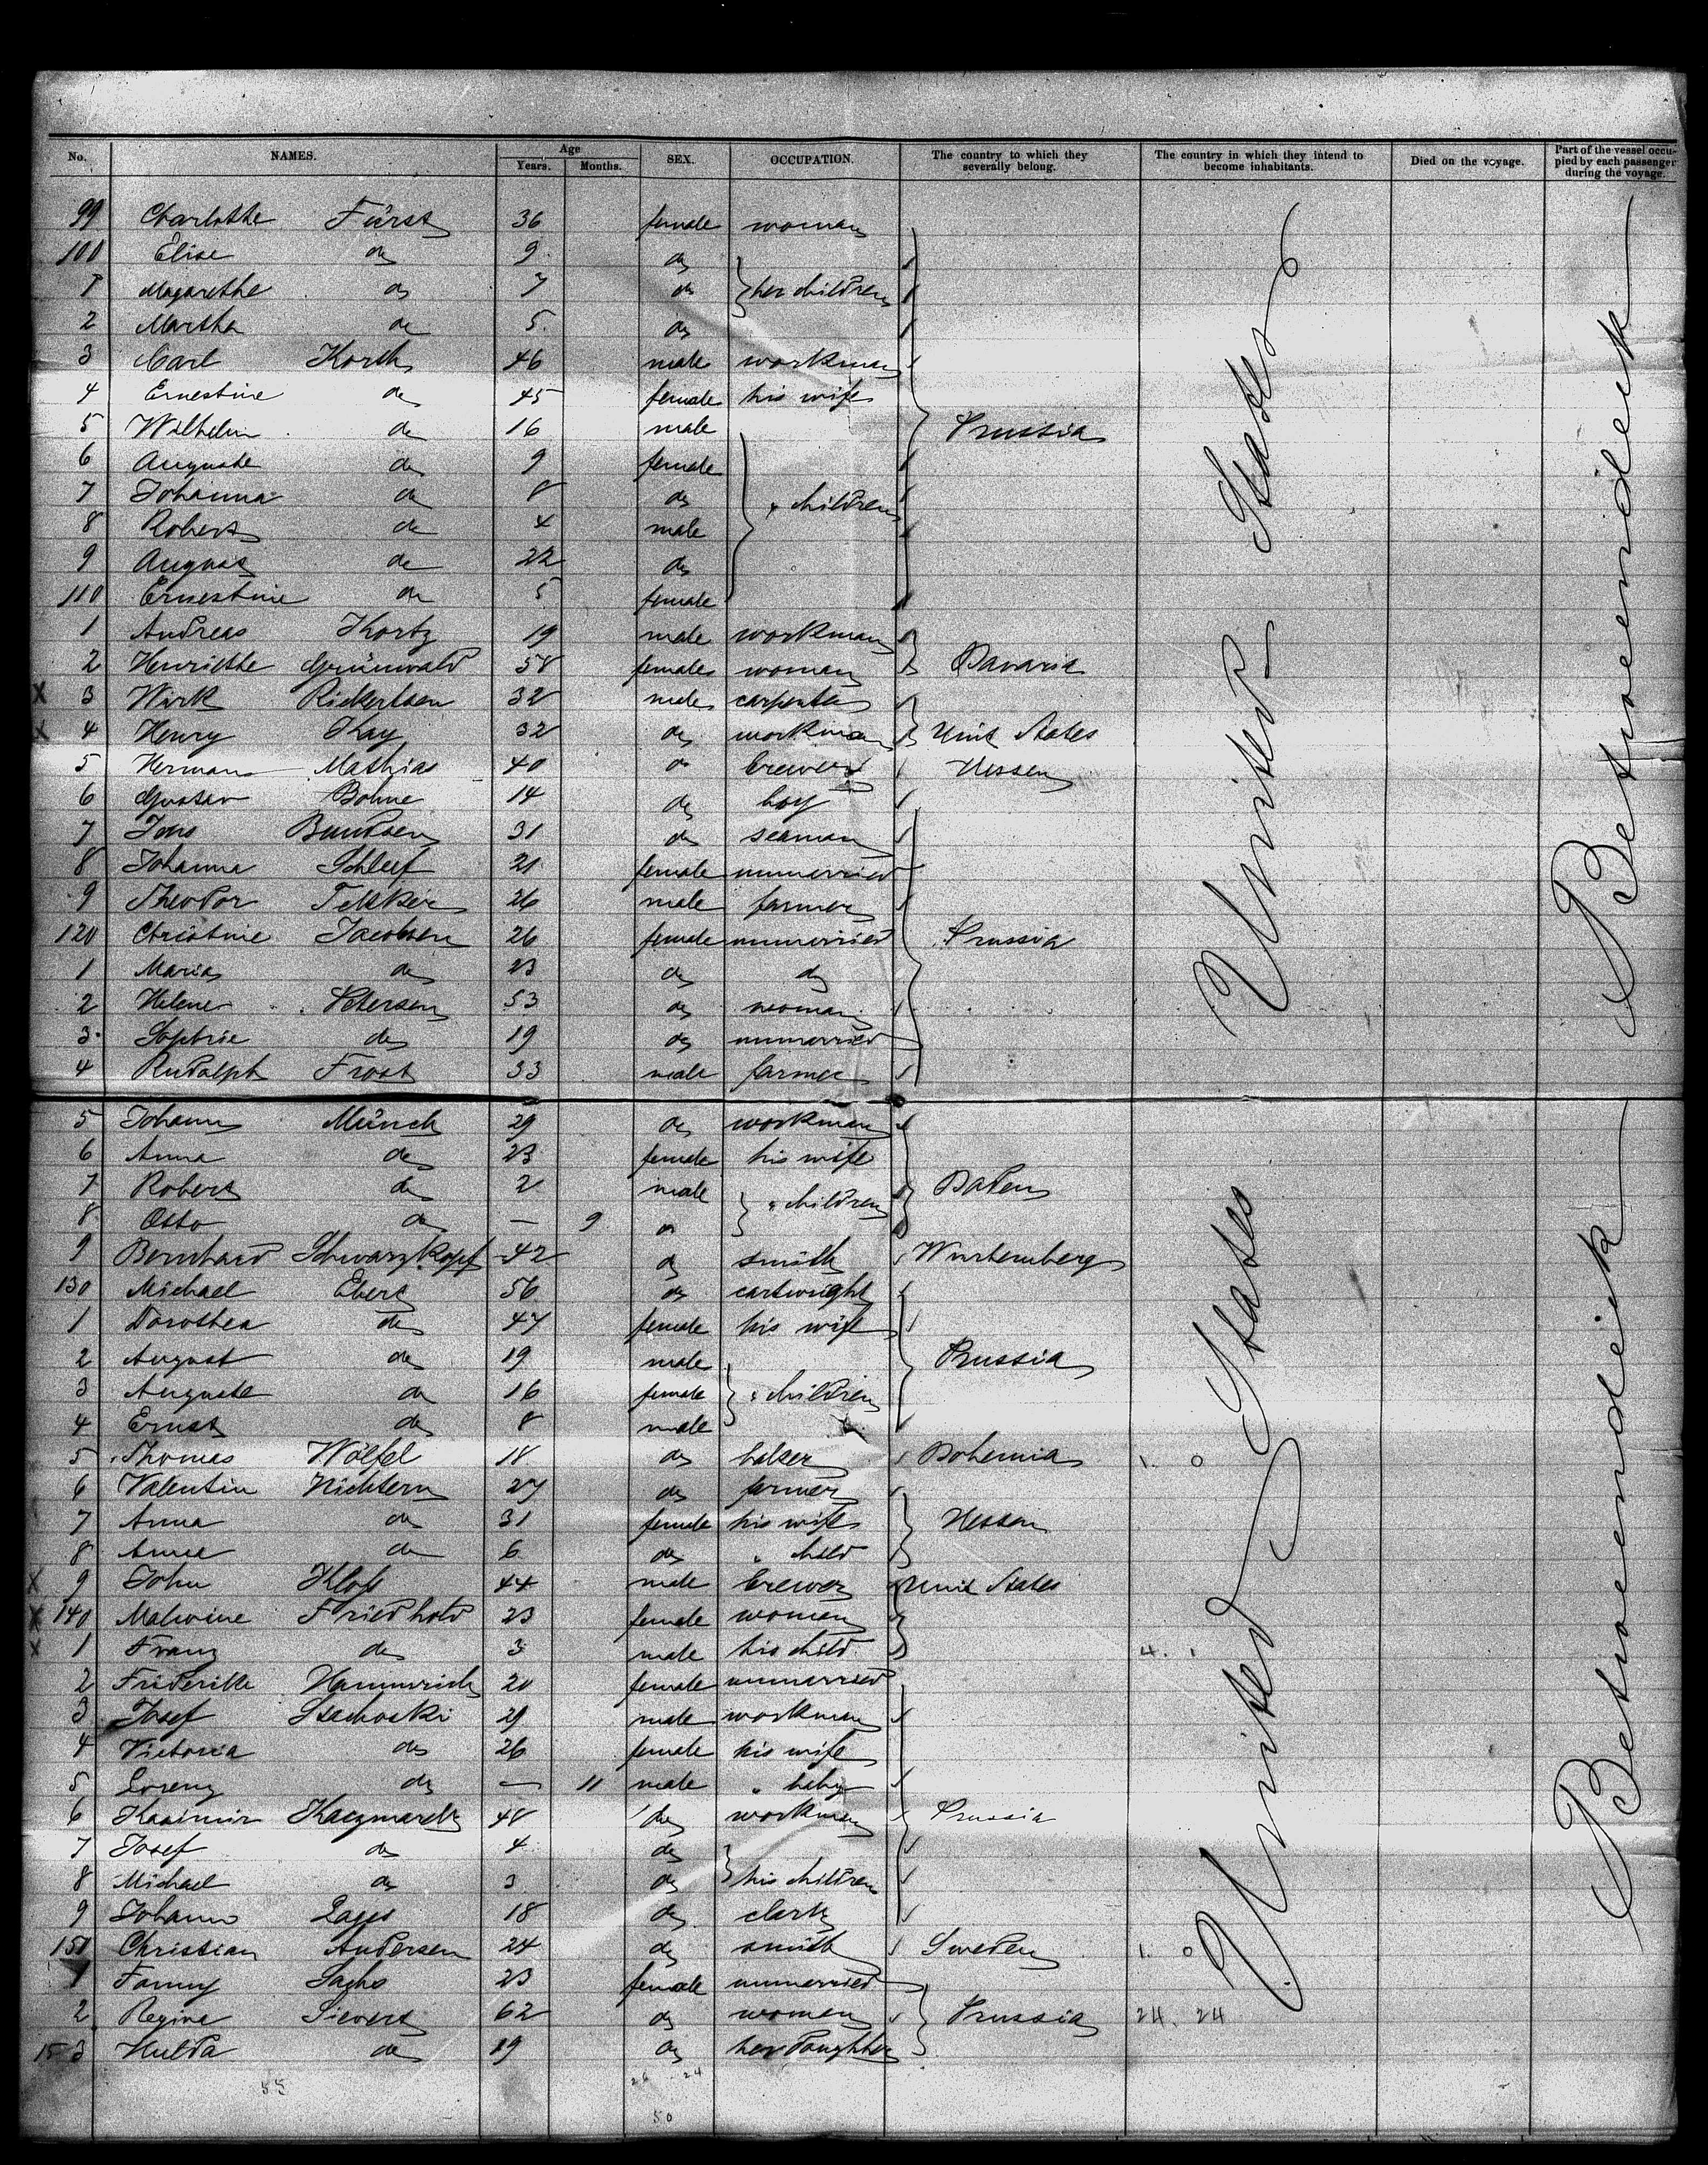 No. NAMES. Age Years. Months. SEX. OCCUPATION. The country to which they severally belong. The country in which they intend to become inhabitants. Died on the voyage. Part of the vessel occupied by each passenger during the voyage.
99 Charlotte Fürst 36 female woman
100 Elise do 9 do
1 Magarethe do 7 do } her children
2 Martha do 5 do
3 Carl Korth 46 male workman
4 Ernestine do 45 female his wife
5 Wilhelm do 16 male Prussia
6 Auguste do 9 female
7 Johanna do 8 do " children
8 Robert do 4 male
9 August do 22 do
110 Ernestine do 5 female
1 Andreas Kortz 19 male workman
2 Henriette Grünwald 58 female woman Bavaria
X 3 Wirk Rickertsen 32 male carpenter
X 4 Henry Kay 32 do workman Unit States
5 Hermann Mathias 40 do brewer Hessen
6 Gustav Bohne 14 do boy
7 Jens Bundsen 31 do seaman
8 Johanna Schleef 21 female unmarried
9 Theodor 26 male farmer
120 Christine Jacobsen 26 female unmarried Prussia
1 Maria do 23 do do
2 Helene Petersen 53 do woman
3 Sophie do 19 do unmarried
4 Rudolph Frost 33 male farmer
5 Johann Münch 29 do workman
6 Anna do 23 female his wife
7 Robert do 2 male " children Baden
8 Otto do — 9 do
9 Bernhard Schwarzkopf 42 do smith Wurtemberg
130 Michael Ebert 56 do cartwright
1 Dorothea do 47 female his wife
2 August do 19 male Prussia
3 Auguste do 16 female " children
4 Ernst do 8 male
5 Thomas Wölfel 18 do baker Bohemia 1. 0
6 Valentin Nichtern 27 do farmer
7 Anna do 31 female his wife Hessen
8 Anna do 6 do " child
X 9 John Klofs 44 male brewer Unit States
X 140 Malwine Friedhold 23 female woman
X 1 Franz do 3 male his child 4. 1
2 Friderike Hammerich 20 female unmarried
3 Josef 29 male workman
4 Victoria do 26 female his wife
5 Lorenz do — 11 male " baby
6 Kasimir Kaczmarek 48 do workman Prussia
7 Josef do 4 do
8 Michael do 3 do his children
9 Johann Lages 18 do clark
150 Christian Andersen 24 do smith Sweden 1. 0
1 Fanny Sachs 23 female unmarried
2 Regine Sievers 62 do woman Prussia 24. 24
153 Hulda do 19 do her daughter
55 26 24
50
United States
Betweendeck
United States
Betweendeck